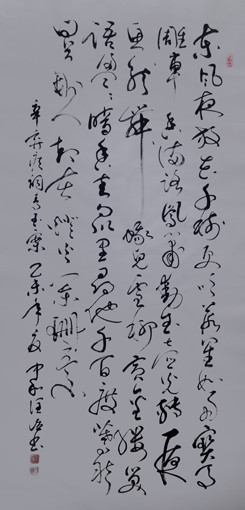 东风夜放花千树更吹落星如雨宝马
雕車香满路凤箫声動玉壶光转一夜
鱼龙舞蛾儿雪柳黄金缕笑
语盈盈暗香去众里寻他千百度蓦然
回首那人却在灯火阑珊处
辛弃疾词青玉案乙未年夏书